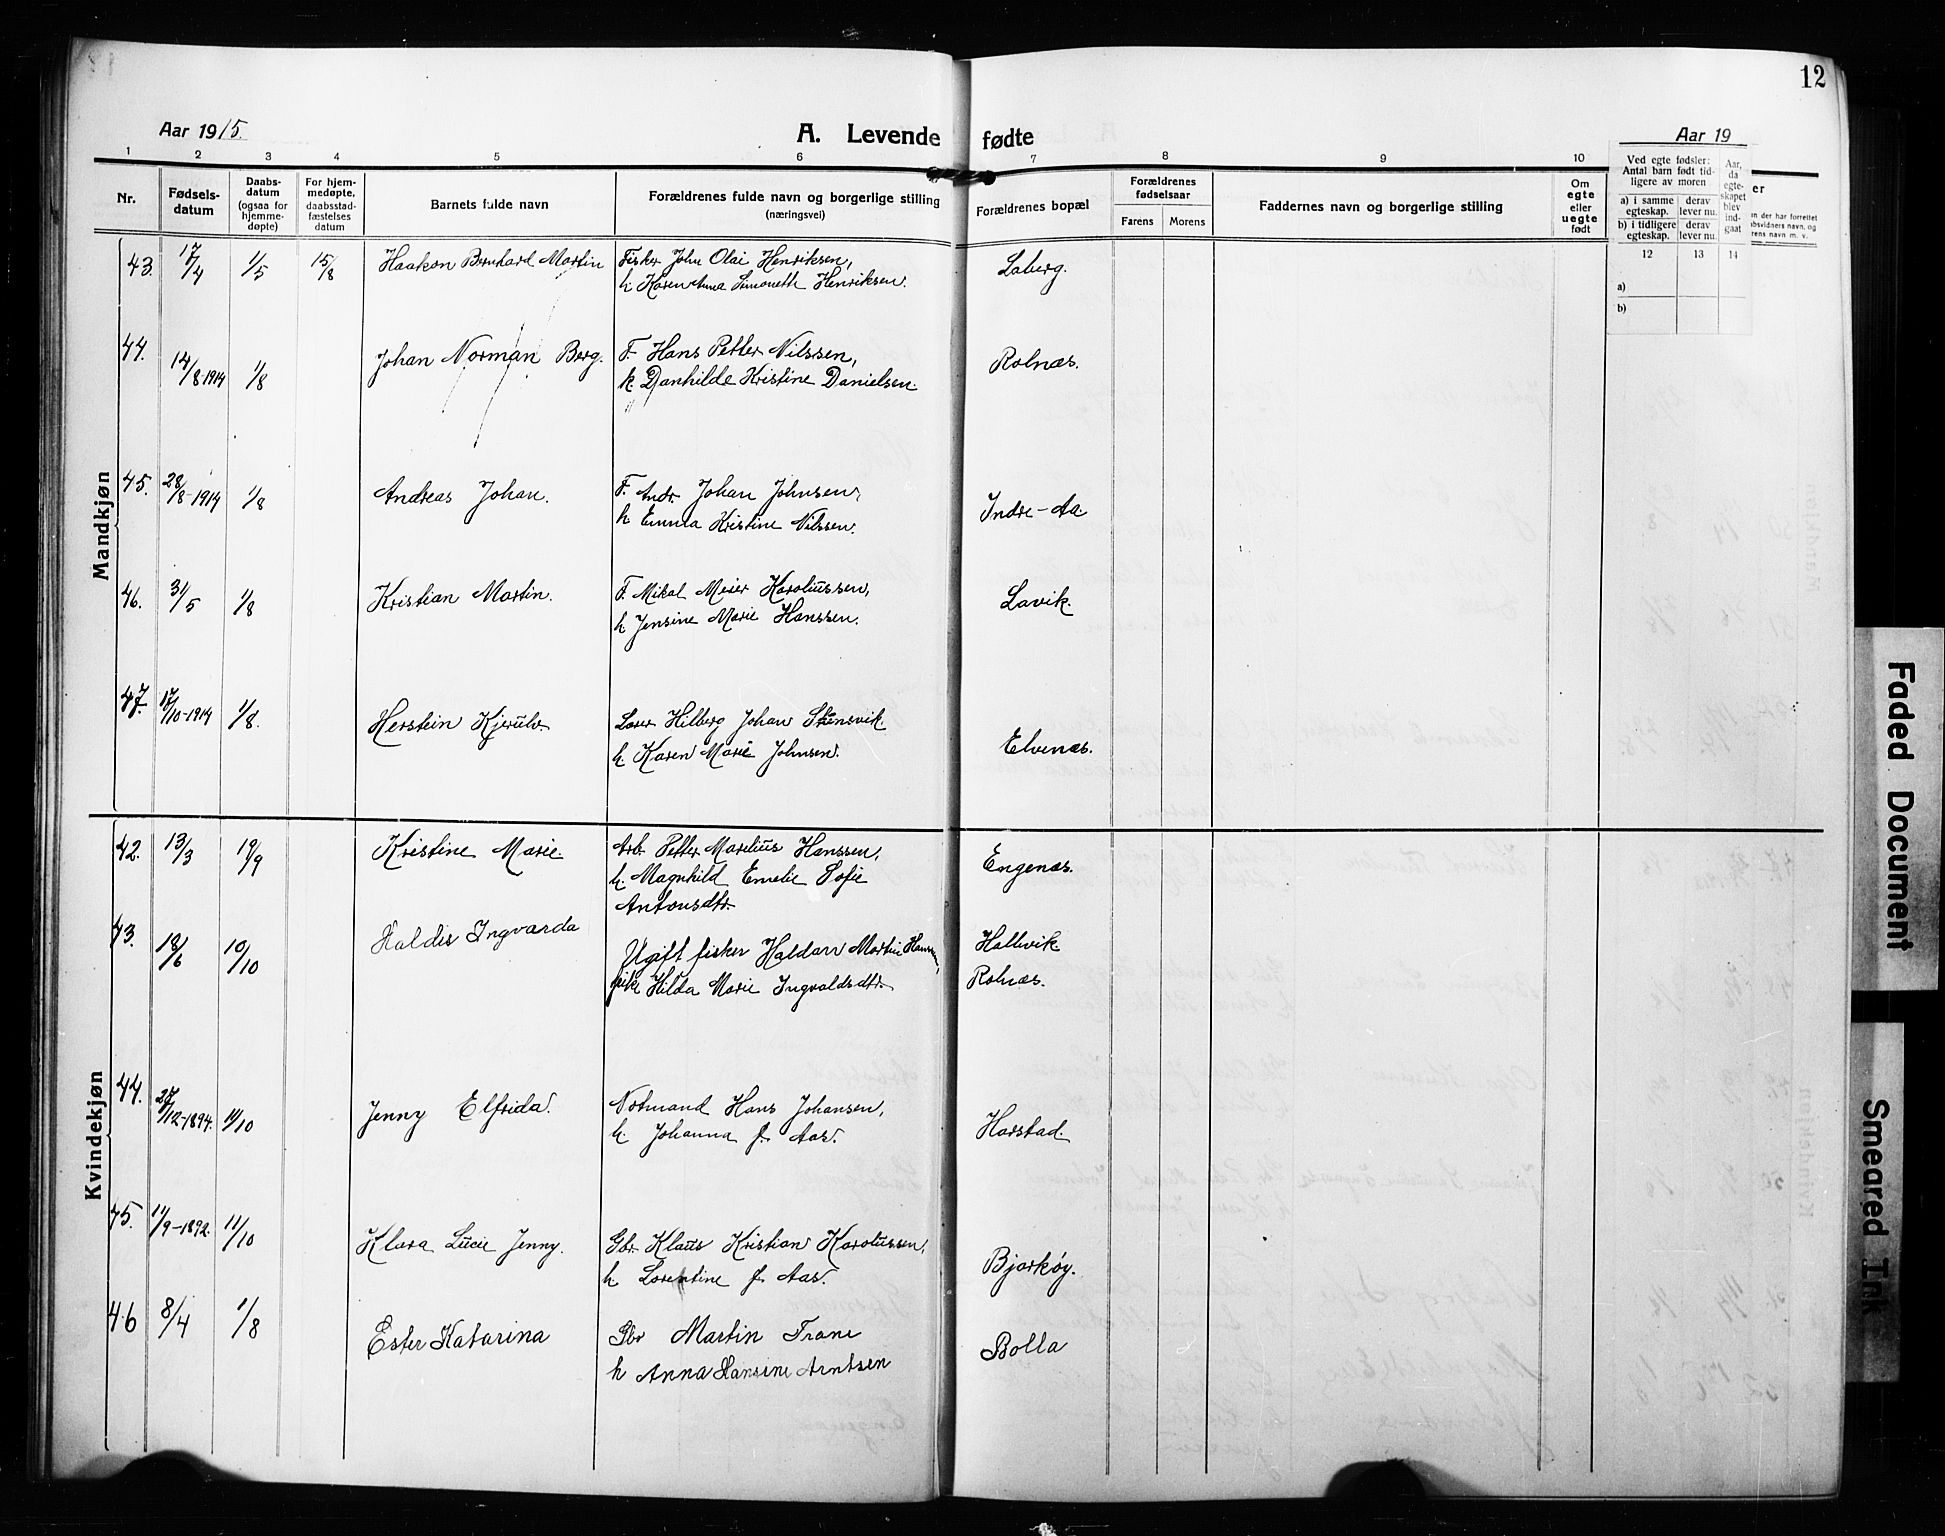 12
Aar 1915.
A. Levende fødte
Aar 19
1 2 3 4 5 6 7 8 9 10
Nr.
Fødsels-
datum
Daabs-
datum
(ogsaa for
hjemme-
døpte)
For hjem-
medøpte,
daabsstad-
fæstelses
datum
Barnets fulde navn
Forældrenes fulde navn og borgerlige stilling
(næringsvei)
Forældrenes bopæl
Forældrenes
fødselsaar
Farens Morens
Faddernes navn og borgerlige stilling
Om
egte
eller
uegte
født
Ved egte fødsler:
Antal barn født tid-
ligere av moren
a) i samme
egteskap.
derav
lever nu.
b) i tidligere
egteskap.
derav
lever nu.
Aar,
da
egte-
skapet
blev
ind-
gaat
12 13 14
a)
b)
Mandkjøn
43. 17/4 1/5 15/8 Haakon Bernhard Martin Fisker John Olai Henriksen, Laberg.
h Karen Anna Simonette Henriksen.
44. 14/8-1914 1/8 Johan Norman Berg. F. Hans Petter Nilssen, Rolnæs.
h. Danhilde Kristine Danielsen.
45. 28/8-1914 1/8 Andreas Johan. F. Andr. Johan Johnsen, Indre-Aa.
h Emma Kristine Nilssen.
46. 31/5 1/8 Kristian Martin. F. Mikal Meier Karoliussen, Lavik.
h Jensine Marie Hanssen.
47. 17/10-1914 1/8. Herstein Kjerulv. Lærer Hilberg Johan Stensvik. Elvenæs.
h. Karen Marie Johnsen.
Kvindekjøn
42. 13/3 19/9 Kristine Marie. Arb. Petter Marelius Hanssen, Engenæs.
h. Magnhild Emelie Sofie
Antonsdtr.
43. 18/6 10/10 Haldis Ingvarda Ugift fisker Haldan Martin Hallvik
pike Hilda Marie Ingvaldsdtr. Rolnæs.
44. 27/12-1894. 10/10 Jenny Elfrida. Notmand Hans Johansen, Harstad.
h. Johanna f. Aas.
45. 11/9-1892. 11/10 Klara Lucie Jenny. Gbr. Klaus Kristian Karolussen, Bjarkøy.
h Lorentine f. Aas.
46 8/4 1/8 Ester Katarina Gbr Martin Trane Bolla
h Anna Hansine Arntsen
Faded Document
Smeared Ink